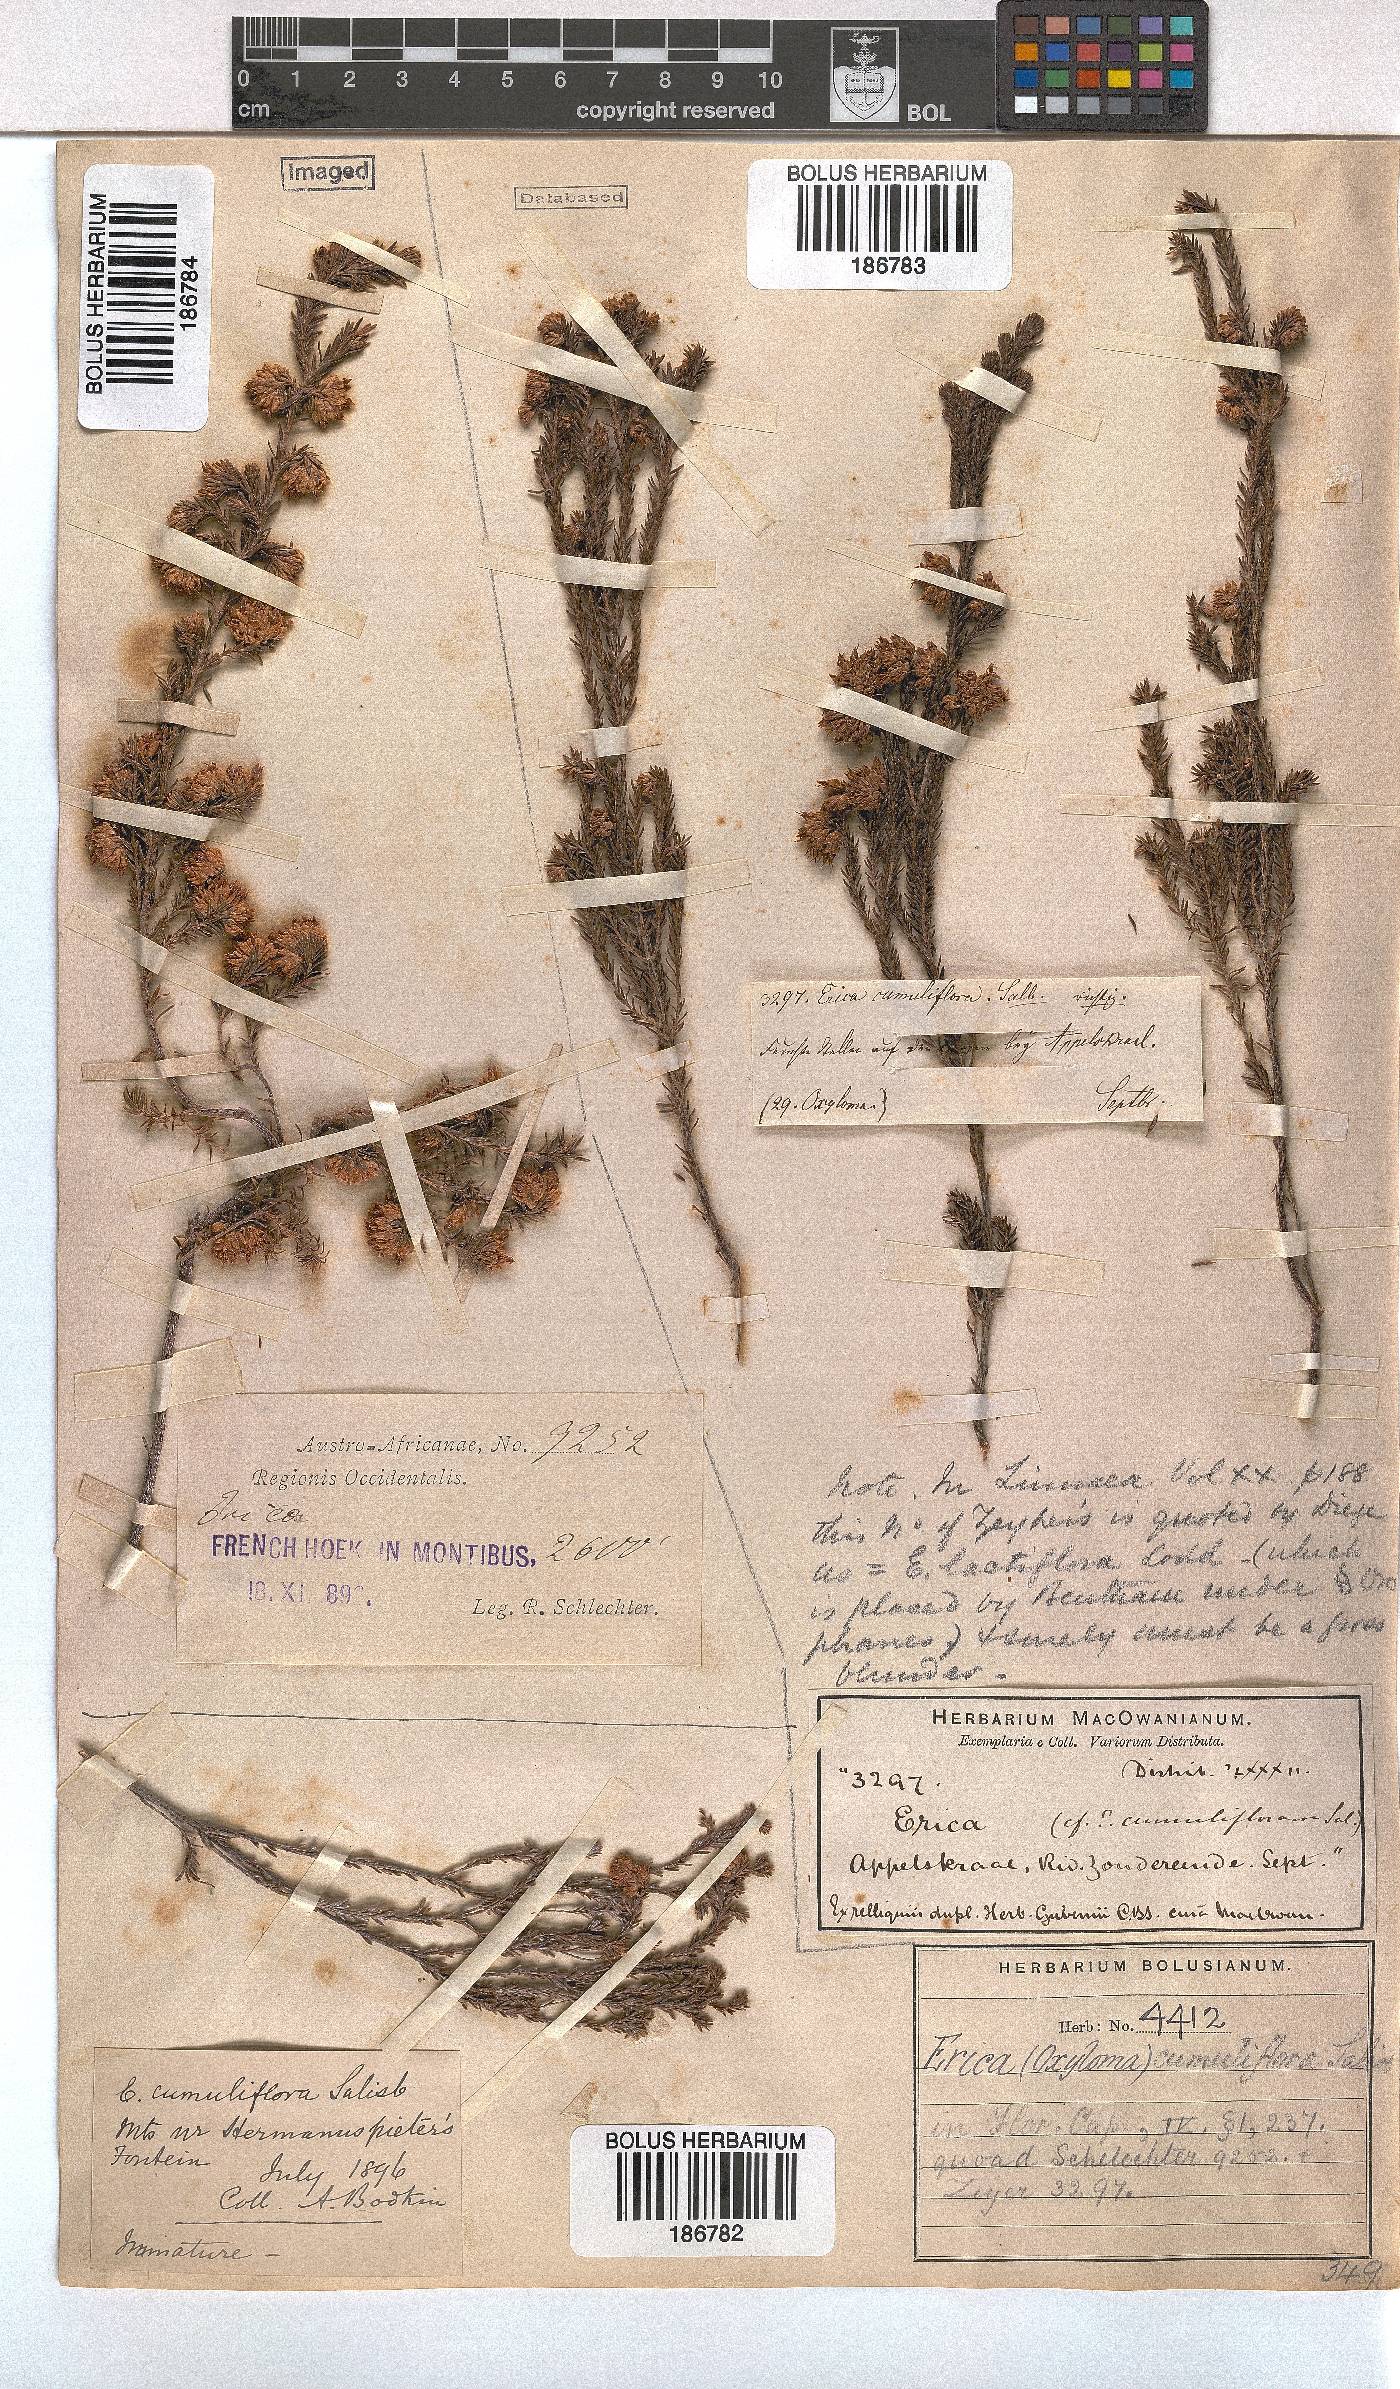 0 1 2 3 4 5 6 7 8 9 10
cm
copyright reserved
BOL
Imaged
Databased
BOLUS HERBARIUM
186784
BOLUS HERBARIUM
186783
3297. Erica cumuliflora. Salb.
auf bey Appelskraal.
(29. Oxyloma.)
Septbr.
Austro=Africanae, No. 9252
Regionis Occidentalis.
Erica
FRENCH HOEK IN MONTIBUS, 2600'
10. XI. 89
Leg. R. Schlechter.
Note. In Linnaea Vol XX p 188
this No of Zeyher's is quoted by
as = E. lactiflora Lodd - (which
is placed by Bentham under §
phanes) & surely must be a gross
blunder -
HERBARIUM MACOWANIANUM.
Exemplaria e Coll. Variorum Distributa.
"3297. Distrib.
Erica (cf. E. cumulifloram Sal.)
Appelskraal, Riv. Zondereinde. Sept."
Ex relliquiis dupl. Herb. Gubernii C.BS. curâ MacOwan.
HERBARIUM BOLUSIANUM.
Herb: No. 4412
Erica (Oxyloma) cumuliflora Salisb
in Flor. Cap., IV. §1, 237.
quoad Schlechter 9252. &
Zeyer 3297.
E. cumuliflora Salisb
Mts nr Hermanuspieter's
Fontein July 1896
Coll. A. Bodkin
Immature -
BOLUS HERBARIUM
186782
349